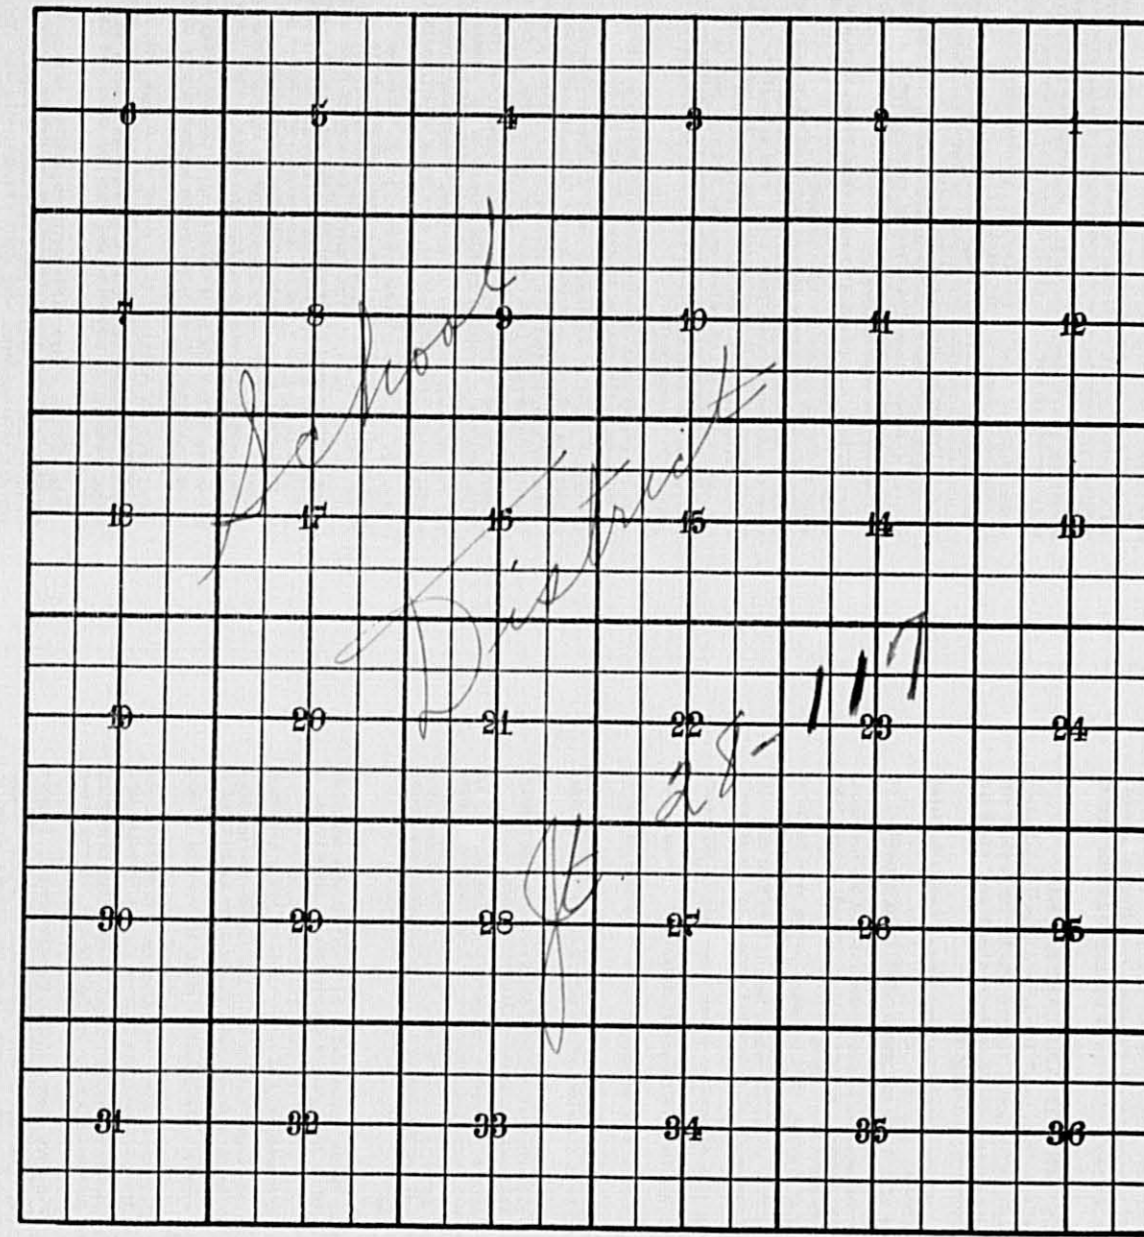 6 5 4 3 2 1
7 8 9 10 11 12
18 17 16 15 14 13
19 20 21 22 23 24
30 29 28 27 26 25
31 32 33 34 35 36
School
District
Jt. 28-117